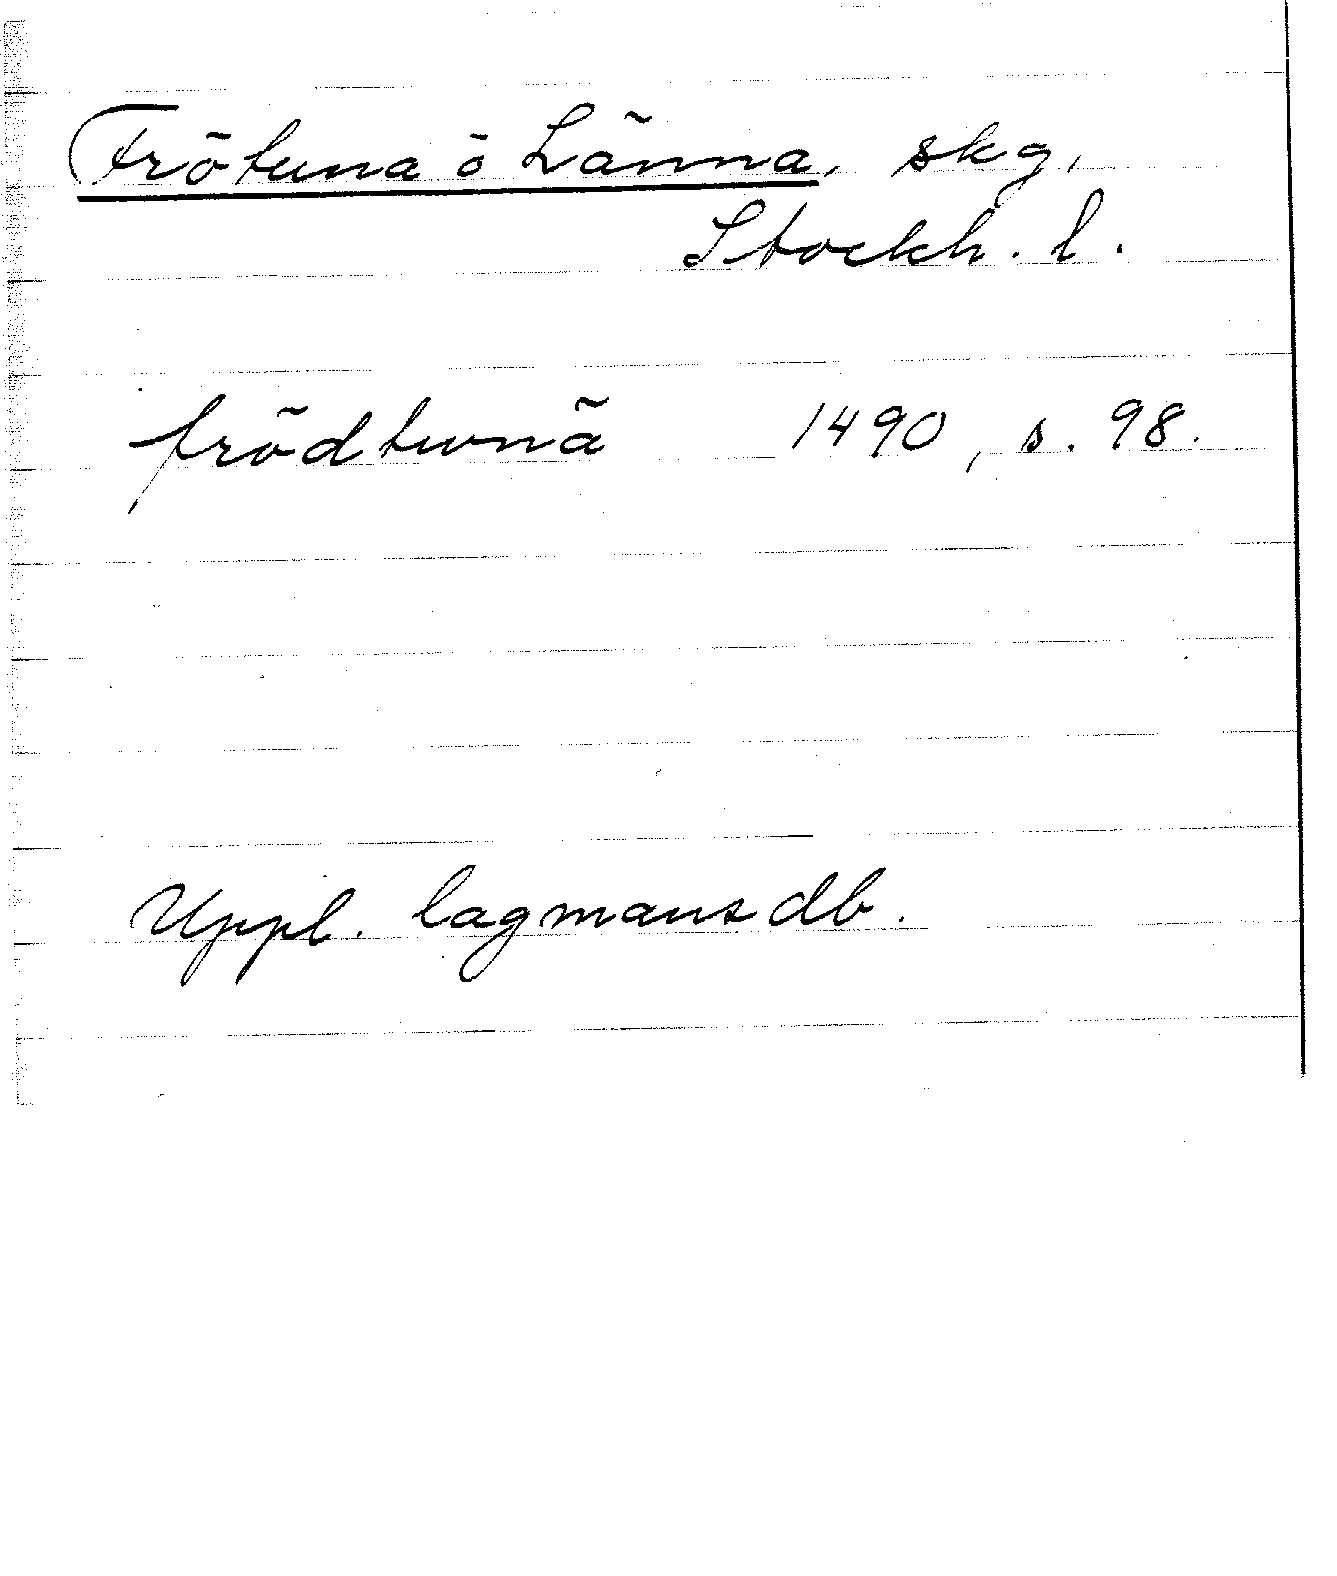 Frötuna o Länna, skg,
Stockh. l.
frödtunä 1490, s. 98.
Uppl. lagmansdb.